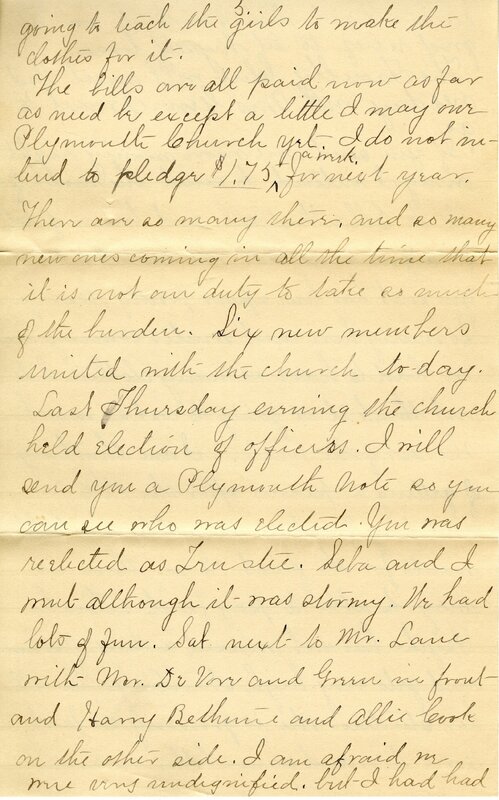 going to teach the girls to make the
clothes for it.
The bills are all paid now as far
as need be except a little I may owe
Plymouth Church yet. I do not in-
tend to pledge $1.75 a week for next year.
There are so many there, and so many
new ones coming in all the time that
it is not our duty to take so much
of the burden. Six new members
united with the church to-day.
Last Thursday evening the church
held election of officers. I will
send you a Plymouth Note so you
can see who was elected. You was
reelected as Trustee. Seba and I
went although it was stormy. We had
lots of fun. Sat next to Mr. Lane
with Mr. De Vore and Green in front
and Harry Bethune and Allie Cook
on the other side. I am afraid we
were very undignified. but I had had